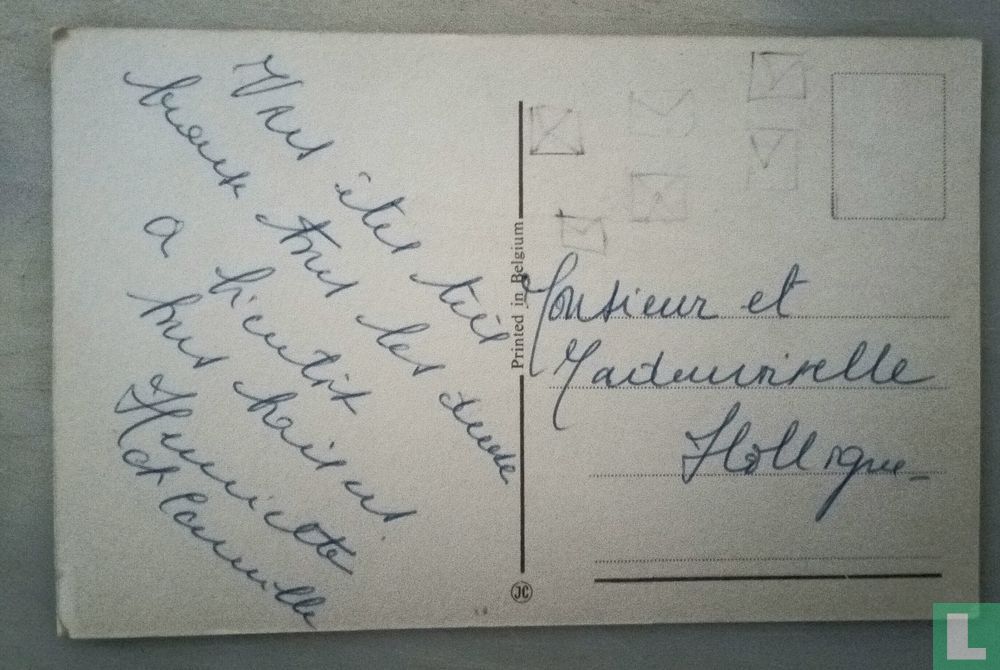 Vous êtes très
beaux tous les deux
a bientôt
bus baisers
Henriette
et Camille
Printed in Belgium
JC
Monsieur et
Mademoiselle
L